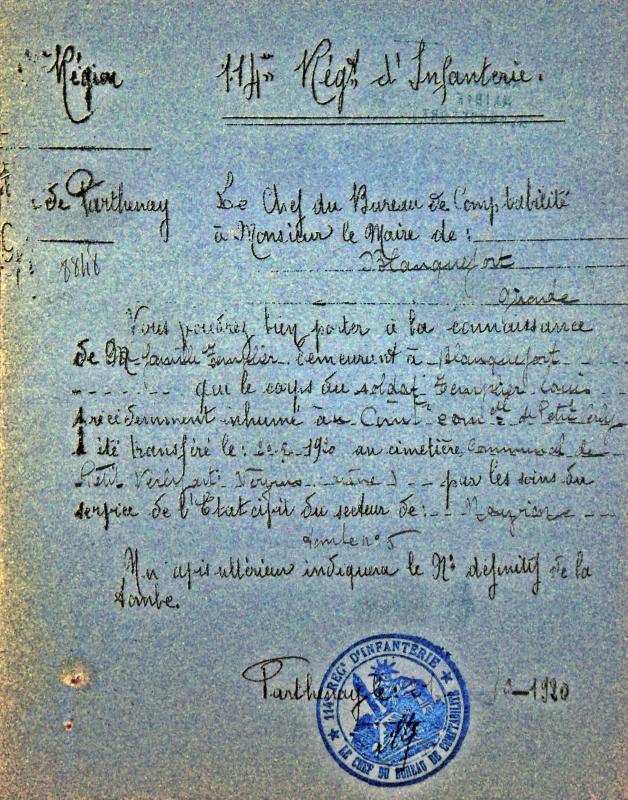 Région
114ème Régt d'Infanterie.
MAIRIE
de Parthenay
8848
Le Chef du Bureau de Comptabilité
à Monsieur le Maire de :
Blanquefort
Gironde
Vous voudrez bien porter à la connaissance
de M demeurant à Blanquefort
que le corps du soldat Tempier Louis
précédemment inhumé au
a été transféré le : 1920 au cimetière Communal de
Petit Verly par les soins du
service de l'Etat civil du secteur de :
tombe n° 5
Un avis ultérieur indiquera le N° définitif de la
tombe.
Parthenay le : 1920
114e REGt D'INFANTERIE
LE CHEF DU BUREAU DE COMPTABILITÉ